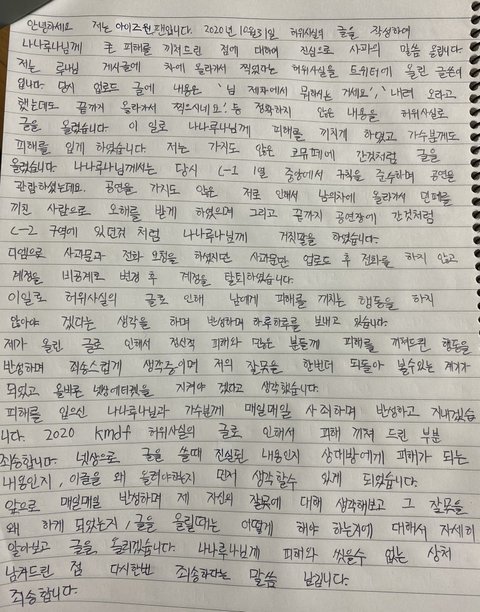 안녕하세요 저는 아이즈원팬입니다. 2020년 10월31일 허위사실의 글을 작성하여
나나루나님께 큰 피해를 끼쳐드린 점에 대하여 진심으로 사과의 말씀 올립니다.
저는 루나님 게시글에 차에 올라가서 찍었다는 허위사실을 트위터에 올린 글쓴이
입니다. 당시 업로드 글에 내용은 '님 제과에서 뭐해서는 거세요', '내려 오라고
했는데도 끝까지 올라가서 찍으시네요' 등 정확하지 않은 내용을 허위사실로
글을 올렸습니다. 이 일로 나나루나님께 피해를 끼치게 하였고 가수분께도
피해를 입게 하였습니다. 저는 가지도 않은 코뮤페에 간것처럼 글을
올렸습니다. 나나루나님께서는 당시 C-1 1열 중앙에서 규칙을 준수하며 공연을
관람하셨는데요. 공연을 가지도 않은 저로 인해서 남의차에 올라가서 민폐를
끼친 사람으로 오해를 받게 하였으며 그리고 끝까지 공연장에 간것처럼
C-2 구역에 있던것 처럼 나나루나님께 거짓말을 하였습니다.
디엠으로 사과문과 전화 요청을 하셨지만 사과문만 업로드 후 전화를 하지 않고
계정을 비공계로 변경 후 계정을 탈퇴하였습니다.
이일로 허위사실의 글로 인해 남에게 피해를 끼치는 행동을 하지
않아야 겠다는 생각을 하며 반성하며 하루하루를 보내고 있습니다.
제가 올린 글로 인해서 정신적 피해와 많은 분들께 피해를 끼쳐드린 행동을
반성하며 죄송스럽게 생각중이며 저의 잘못을 한번더 되돌아 볼수있는 계기가
되었고 올바른 넷상에티켓을 지켜야 겠다고 생각했습니다.
피해를 입으신 나나루나님과 가수분께 매일매일 사죄하며 반성하고 지내겠습
니다. 2020 kmdf 허위사실의 글로 인해서 피해 끼쳐 드린 부분
죄송합니다. 넷상으로 글을 쓸때 진실된 내용인지 상대방에게 피해가 되는
내용인지, 이글을 왜 올려야하는지 먼저 생각할수 있게 되었습니다.
앞으로 매일매일 반성하며 제 자신의 잘못에 대해 생각해보고 그 잘못을
왜 하게 되었는지, 글을 올릴때는 어떻게 해야 하는지에 대해서 자세히
알아보고 글을 올리겠습니다. 나나루나님께 피해와 씻을수 없는 상처
남겨드린 점 다시한번 죄송하다는 말씀 남깁니다.
죄송합니다.